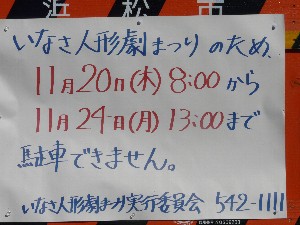 浜松市
いなさ人形劇まつりのため、
11月20日(木) 8:00から
11月24日(月) 13:00まで
駐車できません。
いなさ人形劇まつり実行委員会 542-1111